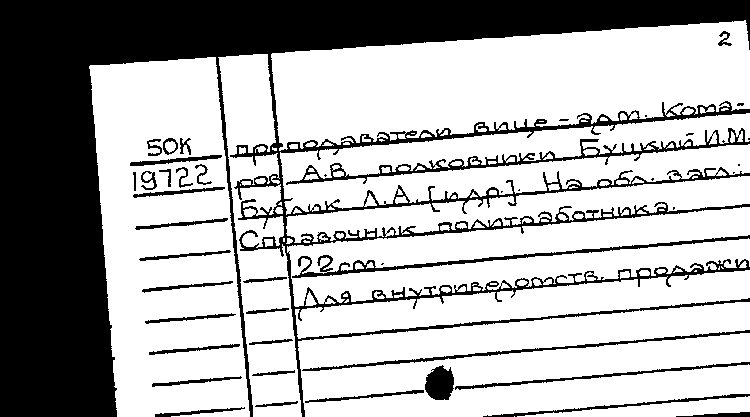 2
50К преподаватели вице-адм. Кома-
19722 ров А.В., полковники Буцкий И.М.
Бублик Л.А. [и др.]. На обл. загл.:
Справочник политработника.
22 см.
Для внутриведомств. продажи